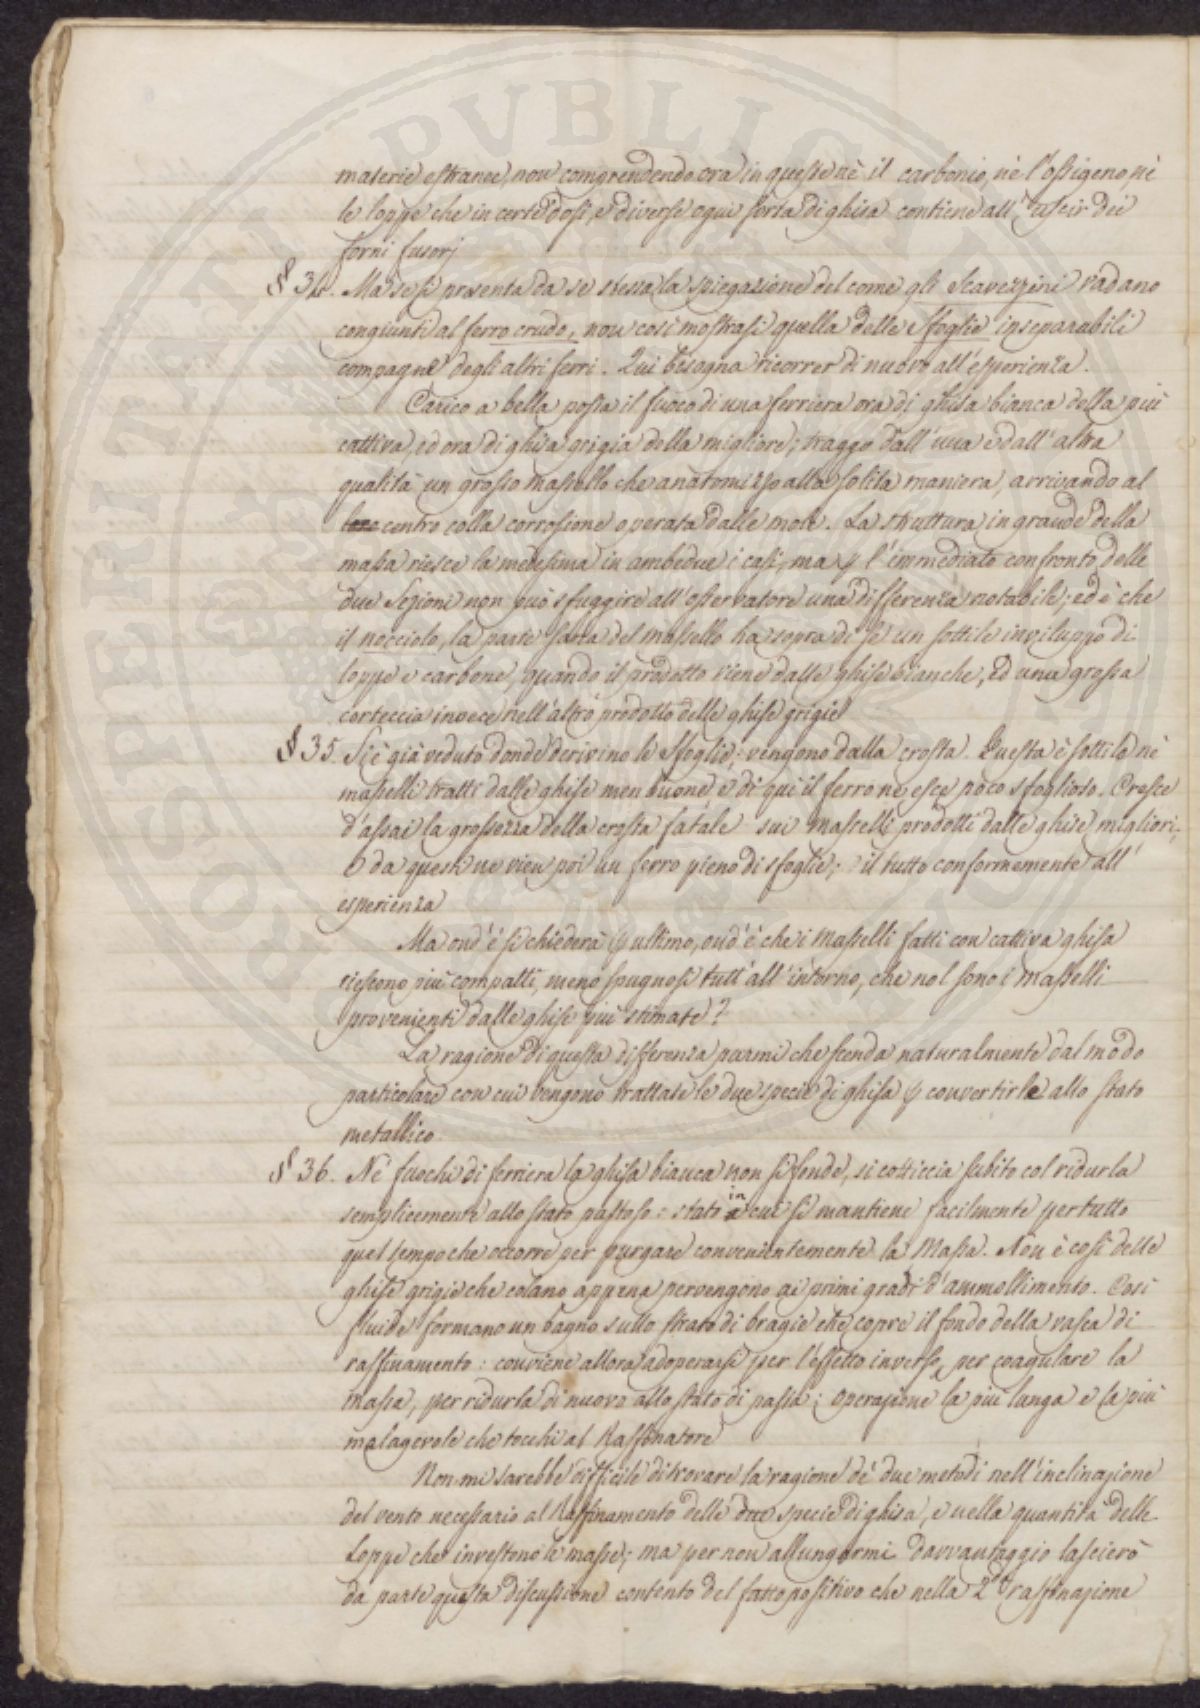 materie estranee, non comprendendo ora in queste nè il carbonio, nè l'ossigeno, nè
le loppe che in certe dosi, e diverse ogni sorta di ghisa contiene all' uscir dei
forni fusorj
§ 34. Ma se si presenta da se stessa la spiegazione del come gli Scavezzini vadano
congiunti al ferro crudo, non così mostrasi quella delle sfoglie inseparabili
compagne degli altri ferri. Qui bisogna ricorrer di nuovo all'esperienza.
Carico a bella posta il fuoco di una ferriera ora di ghisa bianca della più
cattiva, ed ora di ghisa grigia della migliore; traggo dall'una e dall'altra
qualità un grosso massello che anatomizzo alla solita maniera, arrivando al
centro colla corrosione operata dalle mole. La struttura in grande della
massa riesce la medesima in ambedue i casi, ma p l'immediato confronto delle
due Sezioni non può sfuggire all'osservatore una differenza notabile; ed è che
il nocciolo, la parte sana del massello ha sopra di se un sottile inviluppo di
loppe e carbone, quando il prodotto viene dalle ghise bianche, ed una grossa
corteccia invece nell'altro prodotto delle ghise grigie
§ 35. Si è già veduto donde derivino le sfoglie; vengono dalla crosta. Questa è sottile nè
masselli tratti dalle ghise men buone e di qui il ferro ne esce poco sfoglioso. Cresce
d'assai la grossezza della crosta fatale sui masselli prodotti dalle ghise migliori,
e da questi ne vien poi un ferro pieno di sfoglie; il tutto conformemente all'
esperienza
Ma ond'è si chiederà p ultimo, ond'è che i Masselli fatti con cattiva ghisa
riescono più compatti, meno spugnosi tutt'all'intorno, che nol sono i Masselli
provenienti dalle ghise più stimate?
La ragione di questa differenza parmi che scenda naturalmente dal modo
particolare con cui vengono trattate le due specie di ghisa p convertirle allo stato
metallico.
§ 36. Nè fuochi di ferriera la ghisa bianca non si fonde, si cotticcia subito col ridurla
semplicemente allo stato pastoso: stato in cui si mantiene facilmente per tutto
quel tempo che occorre per purgare convenientemente la Massa. Non è così delle
ghise grigie che colano appena pervengono ai primi gradi d'ammollimento. Così
fluide formano un bagno sullo strato di bragie che copre il fondo della vasca di
raffinamento: conviene allora adoperarsi per l'effetto inverso, per coagulare la
massa, per ridurla di nuovo allo stato di pasta; operazione la più lunga e la più
malagevole che tocchi al Raffinatore
Non mi sarebbe difficile di trovare la ragione dè due metodi nell'inclinazione
del vento necessario al Raffinamento delle due specie di ghisa, e nella quantità delle
Loppe che investono le masse; ma per non allungarmi davvantaggio lascierò
da parte questa discussione contento del fatto positivo che nella 2ª raffinazione